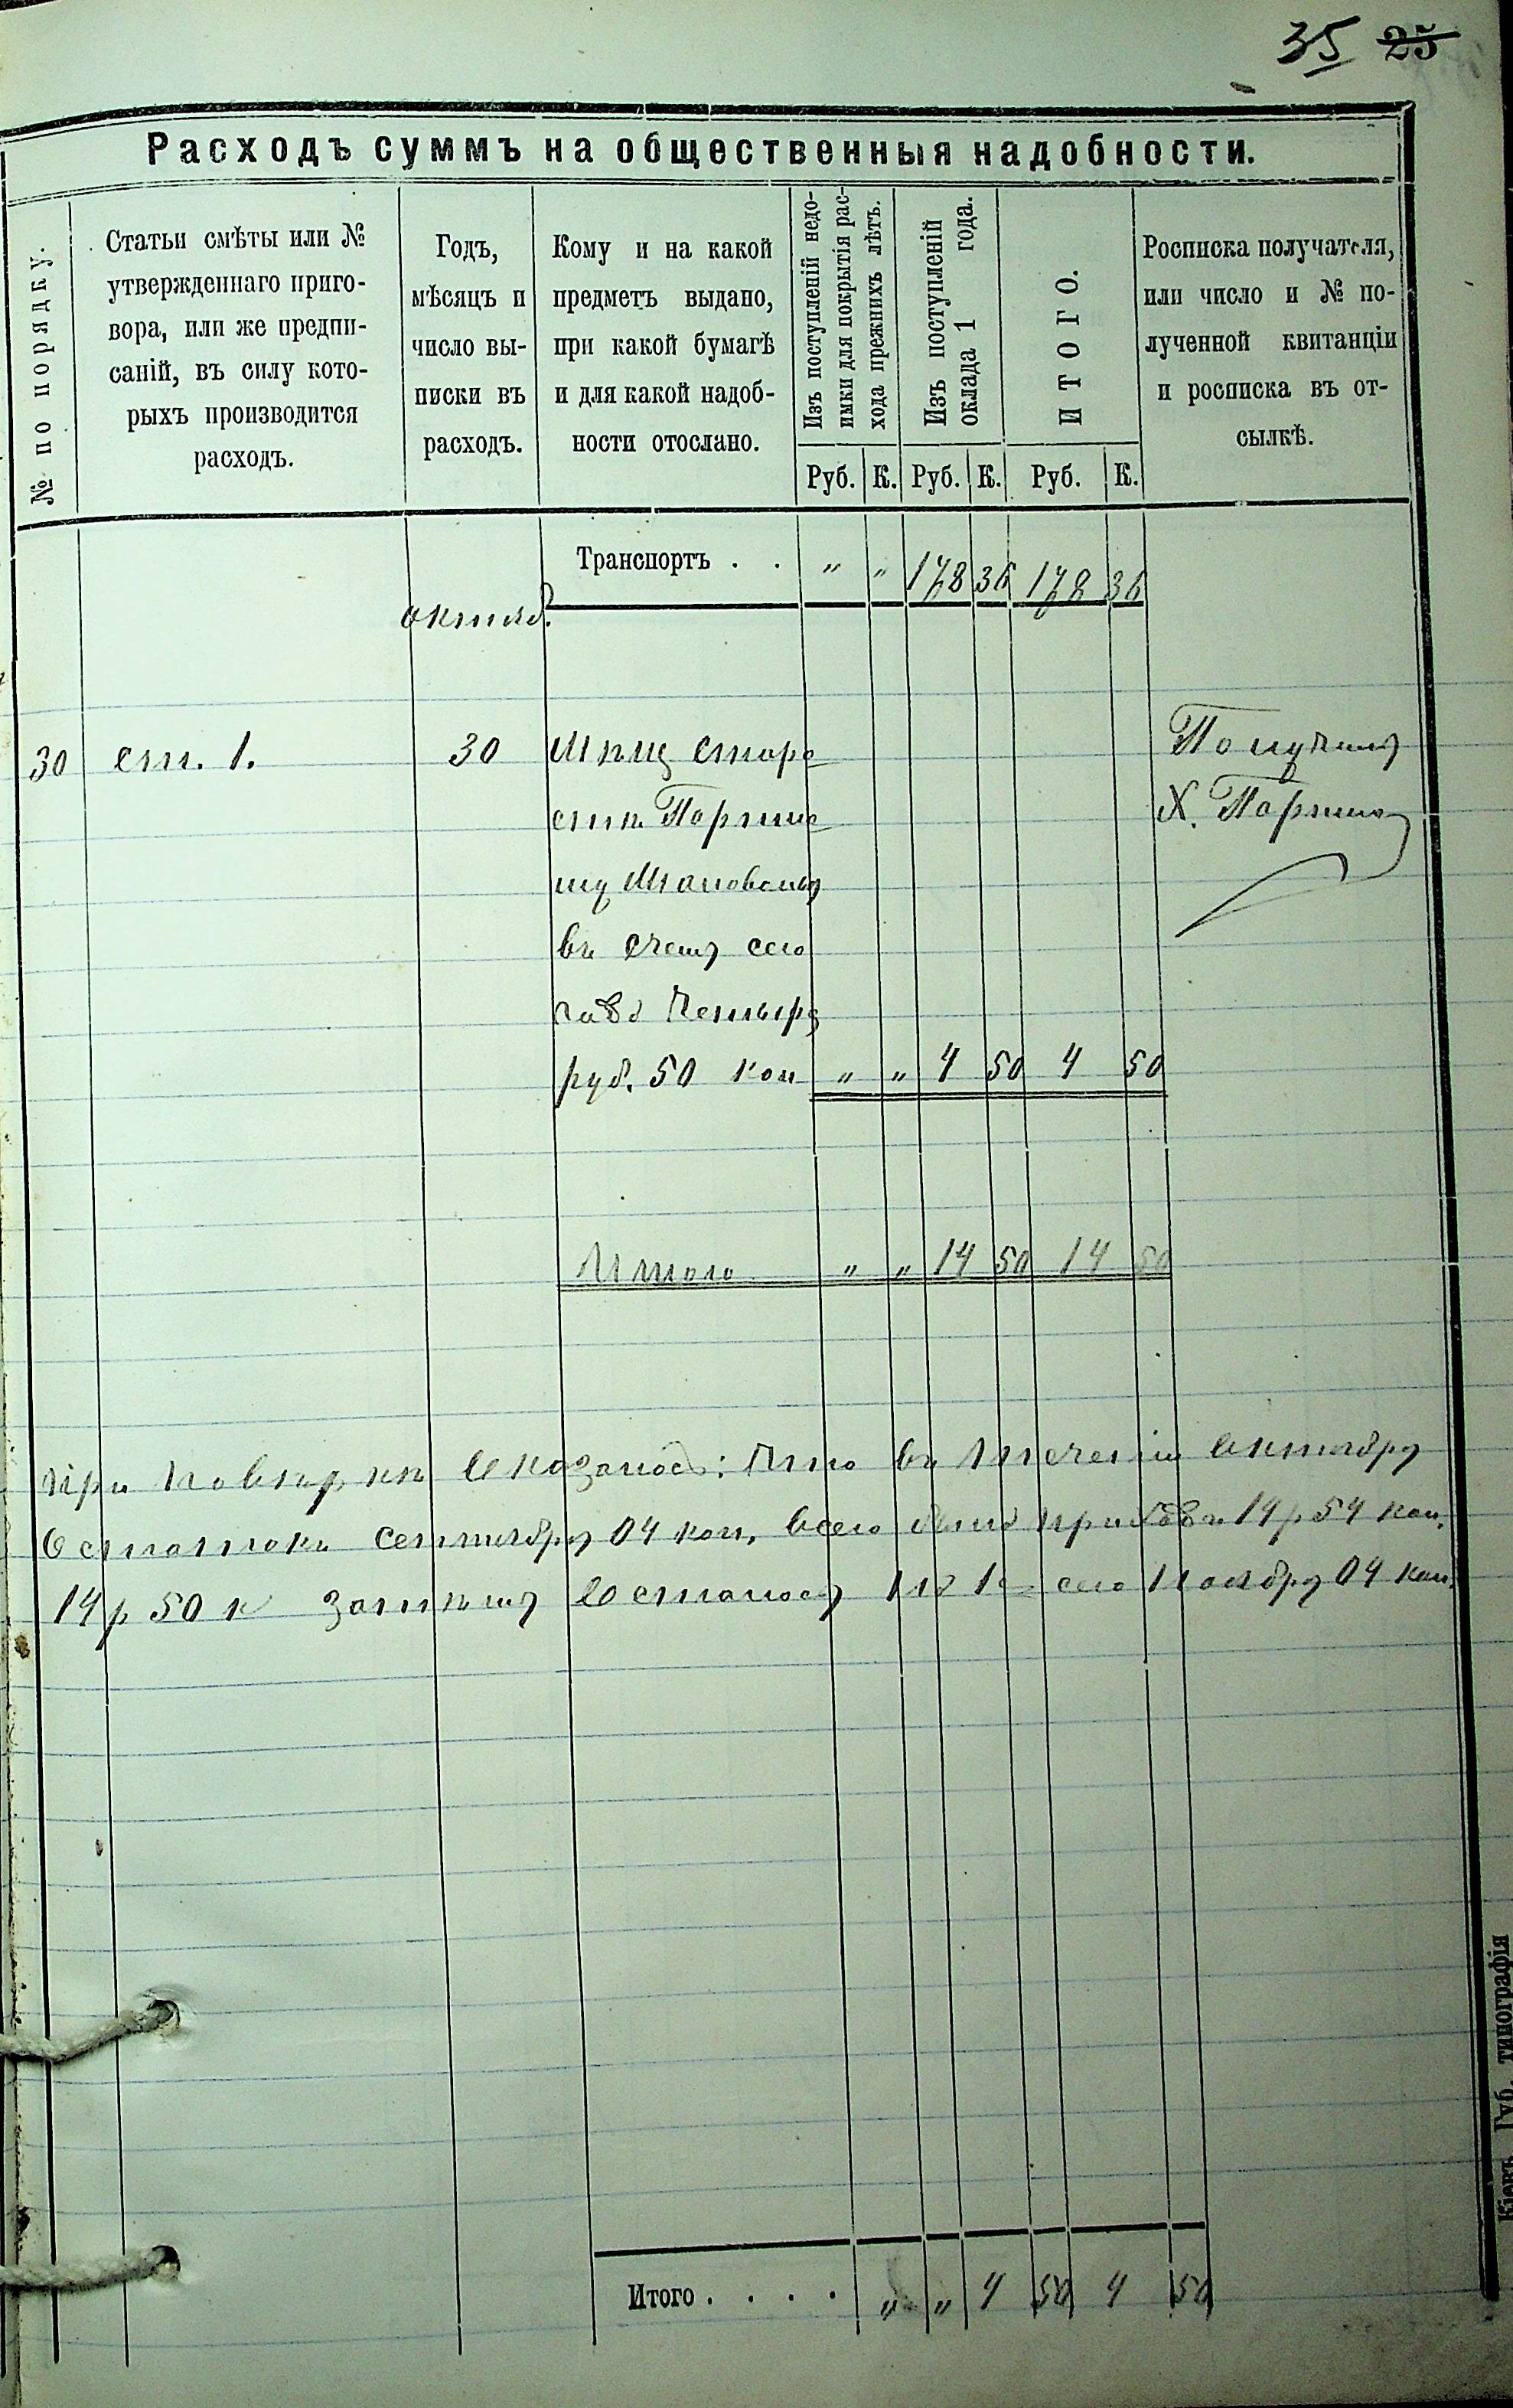 35 25
Расходъ суммъ на общественныя надобности.
№ по порядку.
Статьи смѣты или №
утвержденнаго приго-
вора, или же предпи-
саній, въ силу кото-
рыхъ производится
расходъ.
Годъ,
мѣсяцъ и
число вы-
писки въ
расходъ.
Кому и на какой
предметъ выдано,
при какой бумагѣ
и для какой надоб-
ности отослано.
Изъ поступленій недо-
имки для покрытія рас-
хода прежнихъ лѣтъ.
Изъ поступленій
оклада 1 года.
ИТОГО.
Росписка получателя,
или число и № по-
лученной квитанціи
и росписка въ от-
сылкѣ.
Руб. К. Руб. К. Руб. К.
Транспортъ . . " " 178 36 178 36
октяб.
30 ст. 1. 30 Мѣщ старо
стѣ
въ счетъ сего
года Четыре
руб. 50 коп " " 4 50 4 50
Получилъ
Х.
Итого " " 14 50 14 50
при повѣркѣ оказалось: что въ течении октября
остатокъ сентября 04 коп, всего было 14 р 54 коп,
14 р 50 к за осталось на 1е сего Ноября 04 коп.
Итого . . . . " " 4 50 4 50
Кіевъ. Губ. типографія